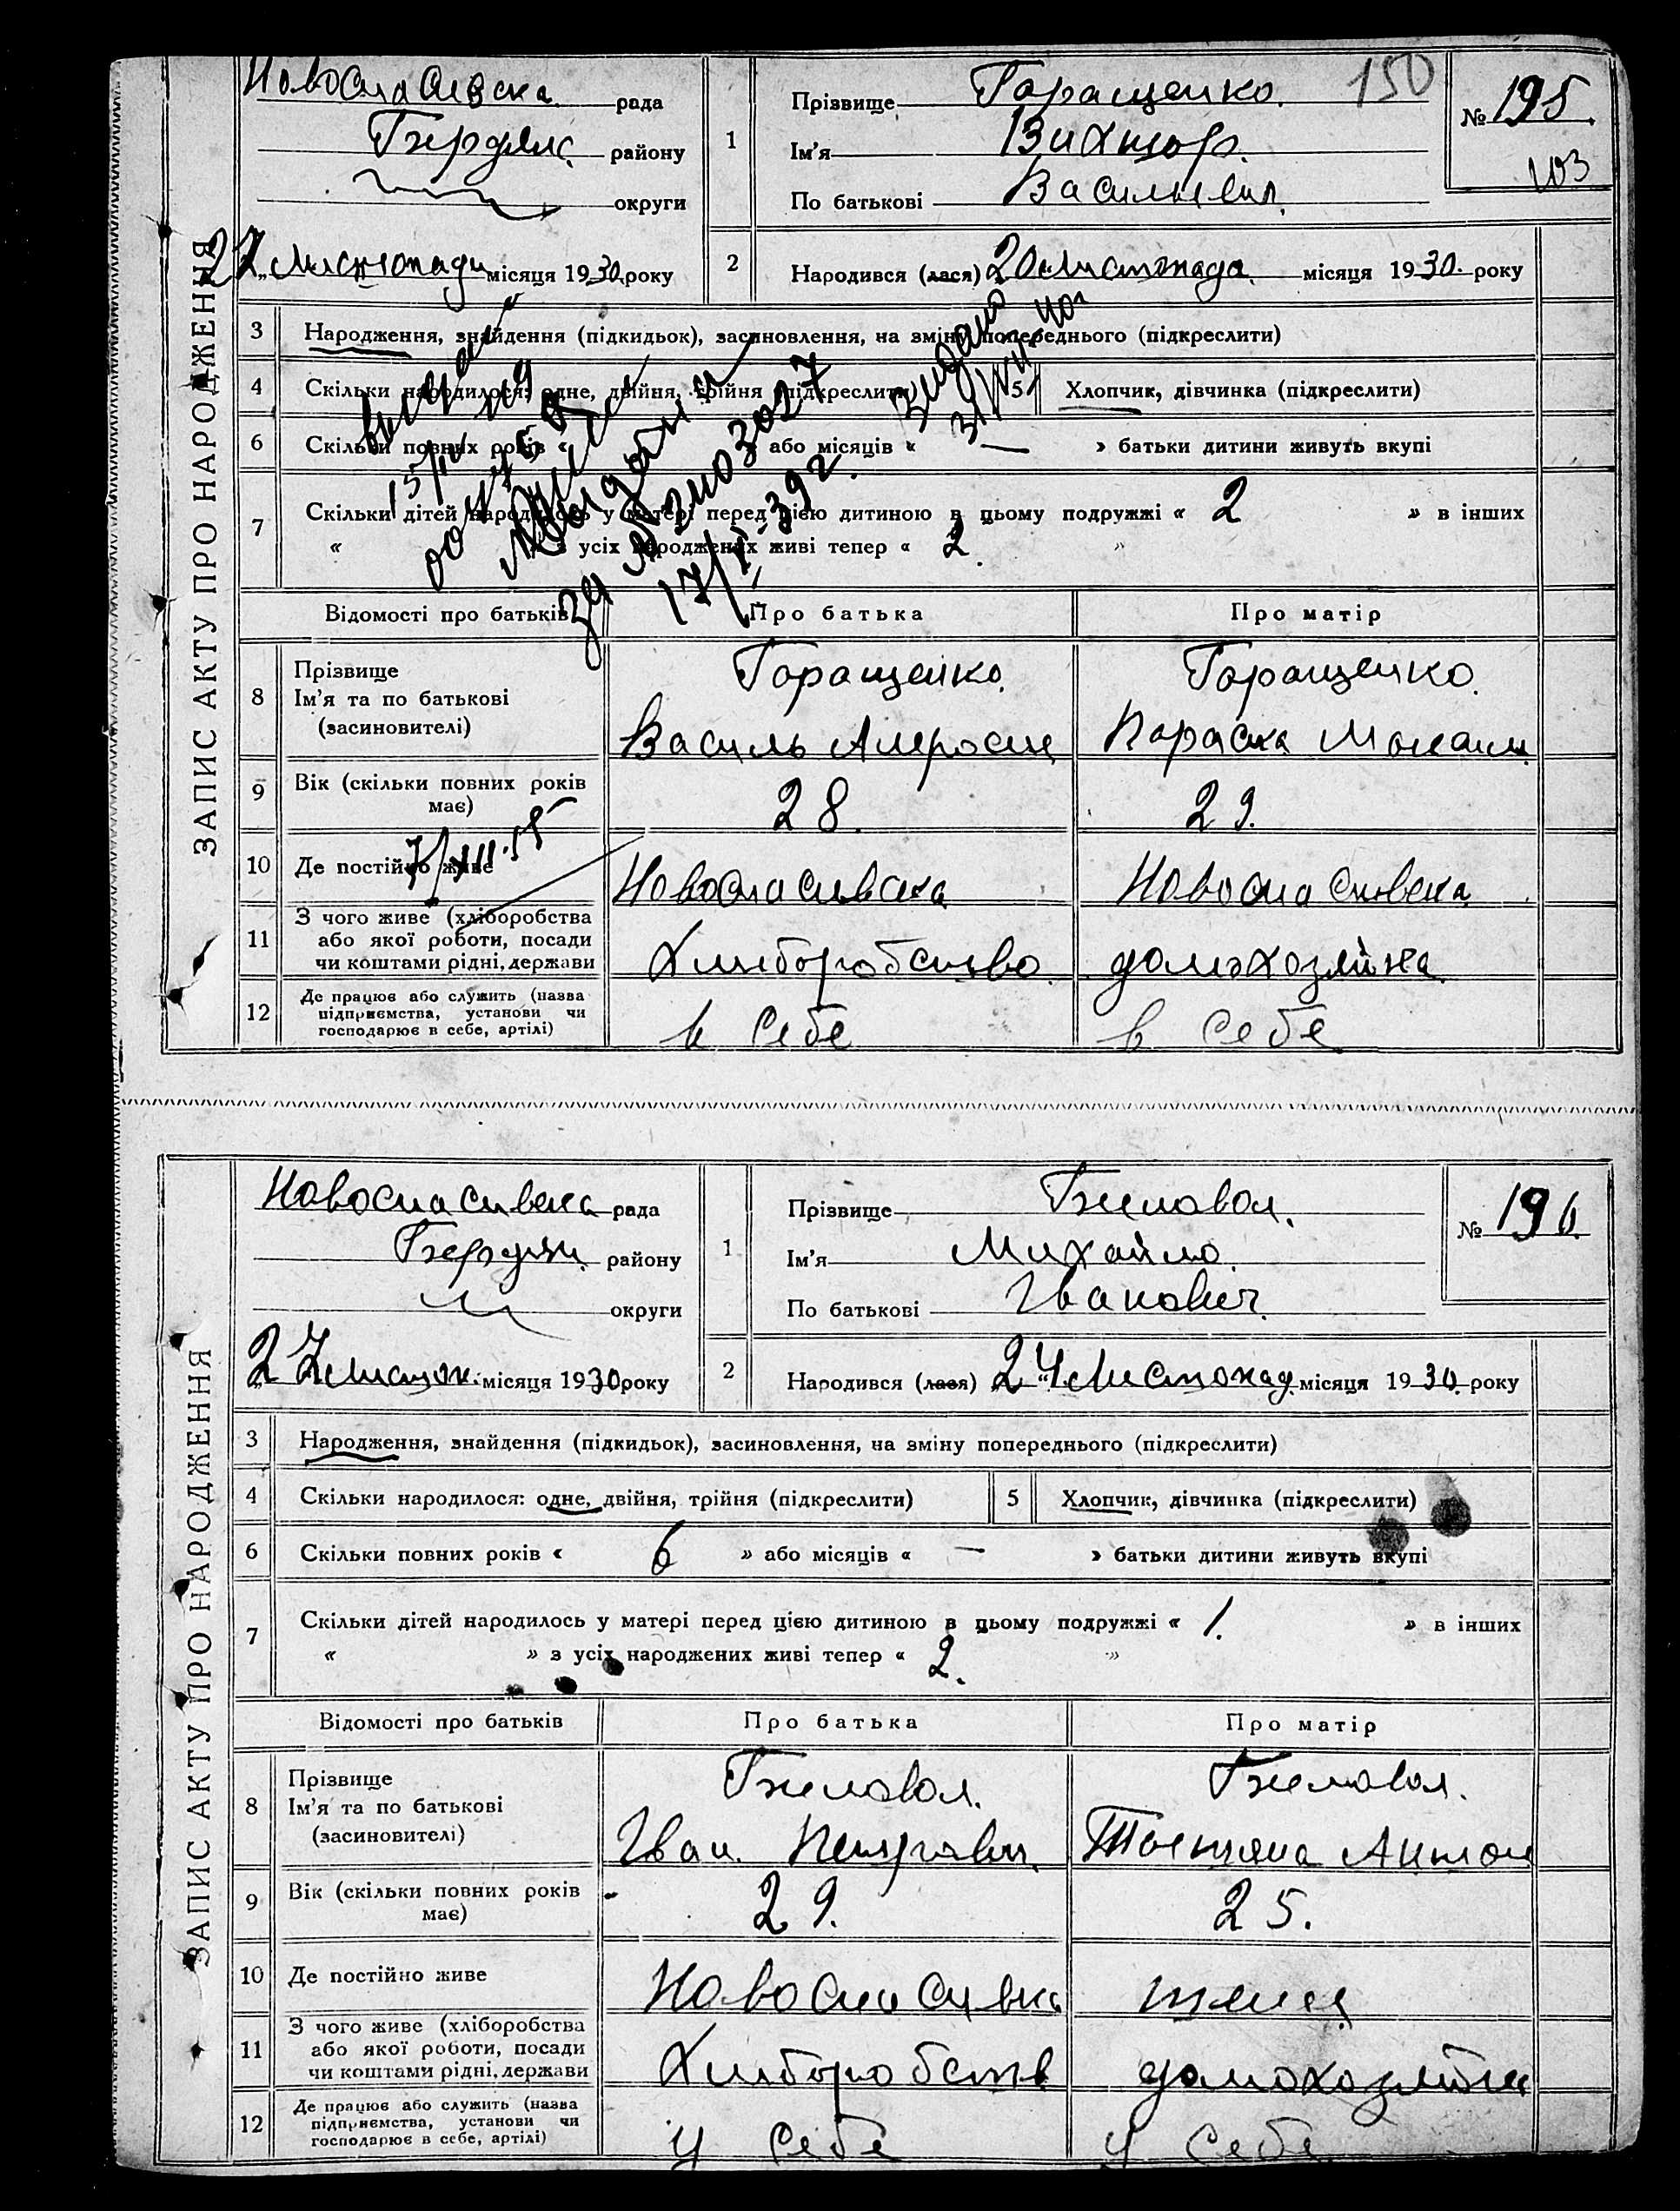 150
Новоспасівска рада
Бердянс. району
округи
27 „ Листопади місяця 1930 року
1
Прізвище Геращенко.
Ім'я Виктор.
По батькові Васильевич.
№ 195.
103
2
Народився (лася) 20 „ Листопада місяця 1930. року
ЗАПИС АКТУ ПРО НАРОДЖЕННЯ
3 Народження, знайдення (підкидьок), засиновлення, на зміну попереднього (підкреслити)
4 Скільки народилося: одне, двійня, трійня (підкреслити) 5 Хлопчик, дівчинка (підкреслити)
6 Скільки повних років « або місяців « — » батьки дитини живуть вкупі
7 Скільки дітей народилось у матері перед цією дитиною в цьому подружжі « 2 » в інших
« » з усіх народжених живі тепер « 2 »
17/I-39г.
Відомості про батьків Про батька Про матір
8 Прізвище
Ім'я та по батькові
(засиновителі)
Геращенко. Геращенко.
Василь Амросие Параска
9 Вік (скільки повних років
має)
28. 29.
10 Де постійно живе
7/XII-55
Новоспасивска Новоспасивска
11 З чого живе (хліборобства
або якої роботи, посади
чи коштами рідні, держави
Хлиборобство. домохозяйка
12 Де працює або служить (назва
підприємства, установи чи
господарює в себе, артілі)
в себе в себе
Новоспасивска рада
Бердян. району
округи
27 Листоп. місяця 1930 року
1
Прізвище Биловол.
Ім'я Михайло.
По батькові Іванович.
№ 196.
2
Народився (лася) 24 „ Листопад місяця 1930. року
ЗАПИС АКТУ ПРО НАРОДЖЕННЯ
3 Народження, знайдення (підкидьок), засиновлення, на зміну попереднього (підкреслити)
4 Скільки народилося: одне, двійня, трійня (підкреслити) 5 Хлопчик, дівчинка (підкреслити)
6 Скільки повних років « 6 » або місяців « — » батьки дитини живуть вкупі
7 Скільки дітей народилось у матері перед цією дитиною в цьому подружжі « 1. » в інших
« » з усіх народжених живі тепер « 2. »
Відомості про батьків Про батька Про матір
8 Прізвище
Ім'я та по батькові
(засиновителі)
Биловол. Биловол.
Іван Петрович. Тетяна Антон
9 Вік (скільки повних років
має)
29. 25.
10 Де постійно живе
Новоспасивка
11 З чого живе (хліборобства
або якої роботи, посади
чи коштами рідні, держави
Хлиборобств домохозяйка
12 Де працює або служить (назва
підприємства, установи чи
господарює в себе, артілі)
у себе у себе